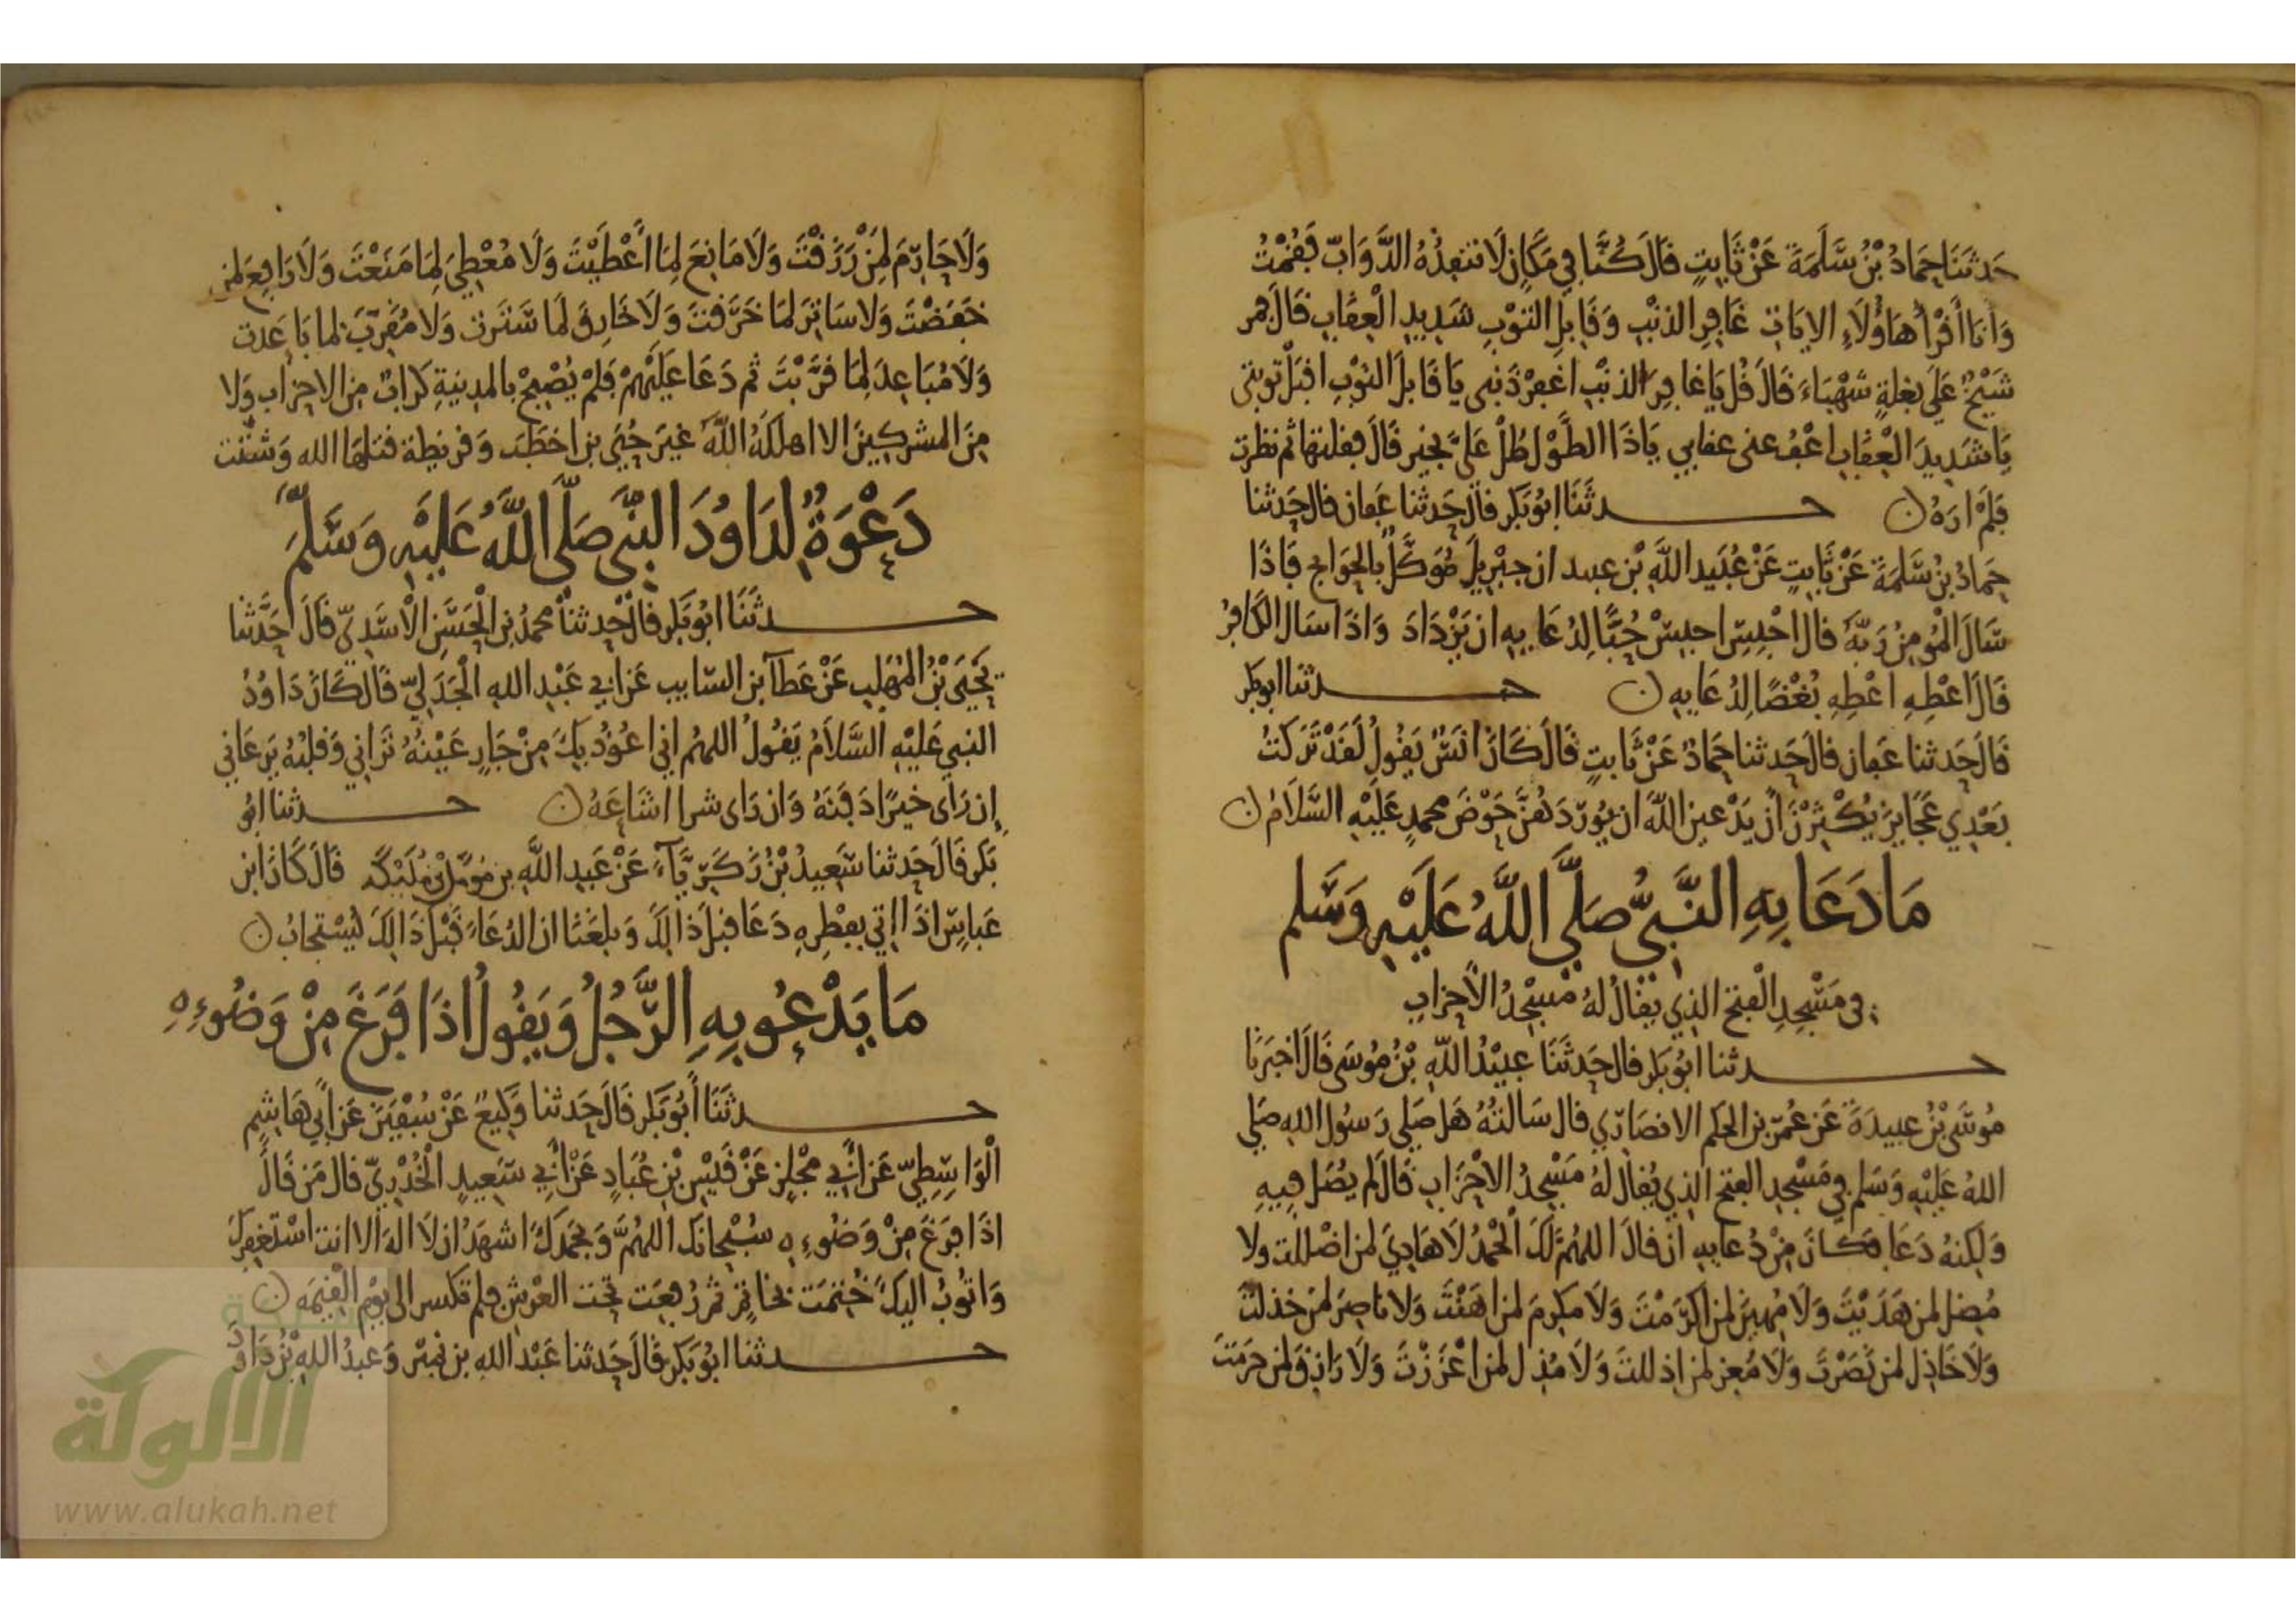 حَدثنَا حمَادُ بْنُ سَّلَمَةَ عَنْ ثَابِتٍ قَالَ كُنَّا فِي مَكَانٍ لَا تنفِذُهُ الدَّوَابّ فَقُمْتُ
وَأنَا أقْرأ هَاؤُلَاءِ الايَاتِ غَافِرِ الذنْبِ وَقَابِلِ التوْبِ شَدِيدِ الْعِقَابِ قَالَ فمر
شَيْخٌ عَلَى بغلةٍ شَهْبَاءَ قَالَ قُل يَا غافِرَ الذنْبِ اغفِرْ ذَنبِي يَا قَابلَ التوْبِ اقبَلْ توبتى
يَا شَدِيدَ الْعِقَابِ اعْفُ عنى عقابي يَاذَا الطَّوْلِ طُلْ عَلىَّ بخيرٍ قَالَ فقلتها ثم نظرت
فَلَمْ ارَهُ ن حـدثَنَا ابُوْ بَكرٍ قالَ حَدثنا عَفان قال حَدثنا
حمادُ بنُ سَّلمَةَ عَنْ ثَابِتٍ عَنْ عُبَيدِ اللَّهِ بْنِ عبيد ان جبْريلَ مُوَكَّلٌ بالحوَايج فَاذَا
سَّالَ الْمُومِنُ رَبَّهُ قال احْبِسْ احبسْ حُبًّا لِدُعَايِهِ ان يَزْدَادَ وَاذَا سَال الكَافِرُ
قَالَ اعْطِهِ اعْطِهِ بُغْضًا لِدُعَايِهِ ن حـدثنا ابو بكر
قَالَ حَدثنا عَفان قالَ حَدثنا حمَادٌ عَنْ ثَابتٍ قَالَ كَانَ انَسٌ يَقُولُ لَقَدْ تَرَكتُ
بَعْدِي عَجَايزَ يُكْثِرْنَ أنْ يَدْعينَ اللَّهَ ان يُورّدَهُنَّ حَوْضَ محمدٍ عَلَيْهِ السَّلَامُ ن
مَا دَعَا بِهِ النَّبِيُّ صَلَّى اللَّهُ عَلَيْهِ وَسَّلم
في مَسْجِدِ الْفتح الذِي يقَالُ لهُ مَسْجِدُ الْأحزابِ
حـدثنا ابُوْ بَكرٍ قال حَدثَنَا عبيْدُ اللَّهِ بْنُ مُوسَى قَالَ اخبَرَنَا
مُوسَّى بْنُ عبيدَةَ عَن عُمَرَ بنِ الحكمِ الانصَارِّي قال سَالتهُ هَل صَلى رَسُول اللهِ صَلى
اللهُ عَلَيْهِ وَسَلم فِي مَسْجِدِ الفتح الذِي يُقالُ لهُ مَسْجِدُ الاحْزَابِ قَالَ لم يُصَلِ فِيهِ
وَلكِنهُ دَعَا فكَانَ مِنْ دُعَايِهِ انْ قالَ اللهُمَّ لَكَ الْحَمْدُ لَا هَادِيَ لمن اضْللت ولا
مُضل لمن هَدَيْتَ وَلَا مُهِينَ لمن اكرَمْتَ وَلَا مكرِمَ لمن اهَنْتَ وَلا ناصِرَ لمن خذلتَ
وَلَا خَاذِل لمن نَصَرْتَ وَلَا مُعِز لمن اذللتَ وَلَا مُذِل لمن اعْزَزْتَ وَلَا رَازِقَ لمن حرَمتَ
وَلَا حَارِمَ لِمَنْ رَزَقْتَ وَلَا مَانِعَ لِمَا أعْطَيْتَ وَلَا مُعْطِيَ لِمَا مَنَعْتَ وَلَا رَافِعَ لمن
خفَضْتَ وَلا سَاتِرَ لمَا خَرَقتَ وَلَا خَارِقَ لمَا سَّتَرت وَلَا مُقَرّبَ لما بَاعَدت
وَلَا مُبَاعِدَ لِمَا قرَّبْتَ ثم دَعَا عَلَيْهِمْ فَلمْ يُصْبِحْ بِالمدِينةِ كرابٌ مِن الاحزابِ وَلا
مِنَ المشركِينَ الا اهلكَهُ اللَّهُ غَيرَ حُيَي بن اخطبَ وَقريظة قتلهَا الله وَشتتت
دَعْوَةٌ لِدَاوُدَ النَّبِيّ صَلَّى اللَّهُ عَلَيْهِ وَسَّلَّمَ
حـدثَنَا ابُوْ بَكرٍ قالَ حدثنا محمدُ بن الْحَسَّنِ الْأسَدِيّ قَالَ حَدَّثنا
يَحْيَى بْنُ المُهَلبِ عَنْ عَطَآ بن السّايب عَن ابِي عَبْدِ اللهِ الْجَدَلِيّ قَال كَانَ دَاوُدُ
النبي عَلَيْهِ السَّلَامُ يَقُولُ اللهُم اني اعُوْذُ بِكَ مِنْ جَارٍ عَيْنُهُ تَرَانِي وَقلبُهُ يَرعَانِي
إن رَاى خيرًا دَفنَهُ وَان رَاى شرا اشَاعَهُ ن حـدثنا ابُو
بَكرٍ قَالَ حَدثنا سّعِيدُ بْنُ زَكَرِيَّآءَ عَنْ عَبدِ اللَّهِ بن مُؤمَّل بن مُلَيْكه قَالَ كَانَ ابن
عَباسٍ اذَا اتي بفِطْرِهِ دَعَا قبل ذَالِكَ وَبلغنَا ان الدُعَاءَ قَبْلَ ذَالِكَ يُسْتجَابُ ن
مَا يَدْعُو بِهِ الرَّجُلُ وَيَقُولُ اذَا فَرَغَ مِنْ وَضُوءِهِ
حـدثَنَا أبُوْ بَكرٍ قَالَ حَدثنا وَكِيعٌ عَنْ سُفْيَنَ عَن أبِي هَاشِمٍ
الْوَاسّطِيّ عَن أبِي مْجلزٍ عَنْ قَيْسِ بْنِ عُبَادٍ عَنْ أبِي سّعِيدٍ الْخُدْرِيّ قال مَن قَالَ
اذَا فرَغَ مِنْ وَضُوءِهِ سُبْحَانَك اللهُمَّ وَبحَمدكَ اشهَدُ ان لَا الهَ الا انت اسْتغفِركَ
وَاتُوبُ اليكَ خُتِمَت بخاتِمٍ ثم رُفِعَت تحت العَرْشِ فلم تكسر الى يَوْمِ الْقيمَه ن
حـدثنا ابُوْ بَكرٍ قَالَ حَدثنا عَبْد اللهِ بن نمَيْرٍ وَعبدُ اللهِ بْنُ دَاوُدَ
الألوكة
www.alukah.net